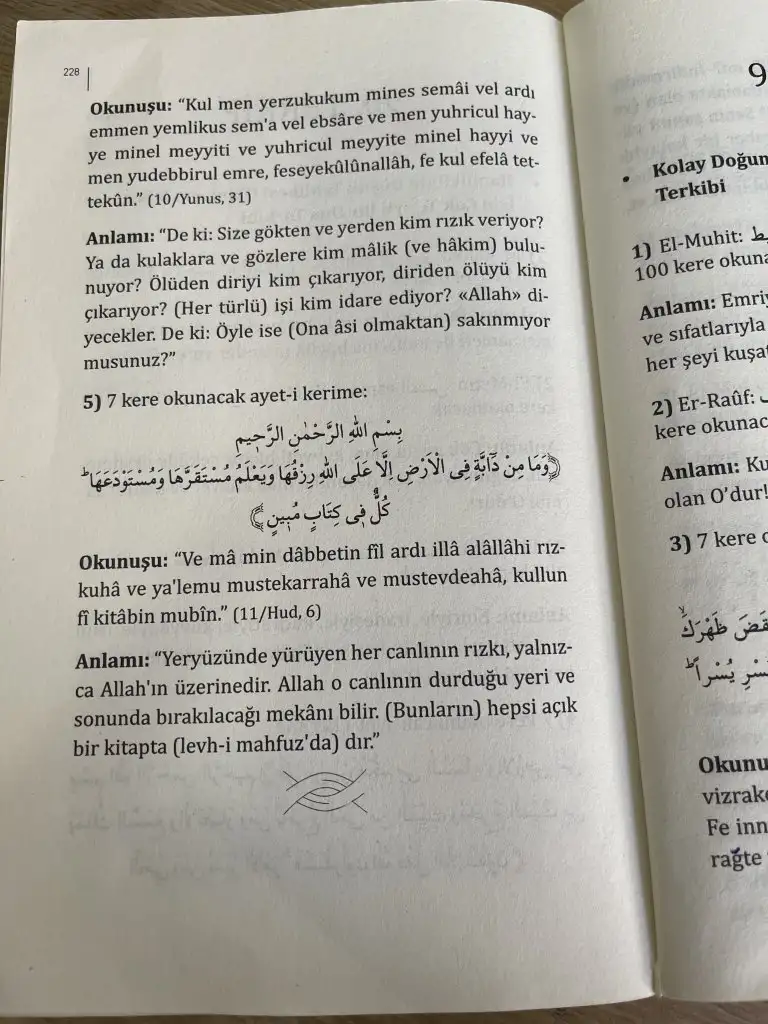 228
Okunuşu: “Kul men yerzukukum mines semâi vel ardı
emmen yemlikus sem'a vel ebsâre ve men yuhricul hay-
ye minel meyyiti ve yuhricul meyyite minel hayyi ve
men yudebbirul emre, feseyekûlûnallâh, fe kul efelâ tet-
tekûn.” (10/Yunus, 31)
Anlamı: “De ki: Size gökten ve yerden kim rızık veriyor?
Ya da kulaklara ve gözlere kim mâlik (ve hâkim) bulu-
nuyor? Ölüden diriyi kim çıkarıyor, diriden ölüyü kim
çıkarıyor? (Her türlü) işi kim idare ediyor? «Allah» di-
yecekler. De ki: Öyle ise (Ona âsi olmaktan) sakınmıyor
musunuz?”
5) 7 kere okunacak ayet-i kerime:
بِسْمِ اللهِ الرَّحْمٰنِ الرَّح۪يمِ
﴿وَمَا مِنْ دَٓابَّةٍ فِى الْاَرْضِ اِلَّا عَلَى اللهِ رِزْقُهَا وَيَعْلَمُ مُسْتَقَرَّهَا وَمُسْتَوْدَعَهَاۜ
كُلٌّ ف۪ى كِتَابٍ مُب۪ينٍ﴾
Okunuşu: “Ve mâ min dâbbetin fîl ardı illâ alâllâhi rız-
kuhâ ve ya'lemu mustekarrahâ ve mustevdeahâ, kullun
fî kitâbin mubîn.” (11/Hud, 6)
Anlamı: “Yeryüzünde yürüyen her canlının rızkı, yalnız-
ca Allah'ın üzerinedir. Allah o canlının durduğu yeri ve
sonunda bırakılacağı mekânı bilir. (Bunların) hepsi açık
bir kitapta (levh-i mahfuz'da) dır.”
9
• Kolay Doğum
Terkibi
1) El-Muhit:
100 kere okuna
Anlamı: Emriy
ve sıfatlarıyla
her şeyi kuşat
2) Er-Raûf:
kere okunac
Anlamı: Ku
olan O'dur!
3) 7 kere o
ظَهْرَكَۙ
يُسْراًۜ
Okunu
vizrake
Fe inn
rağte